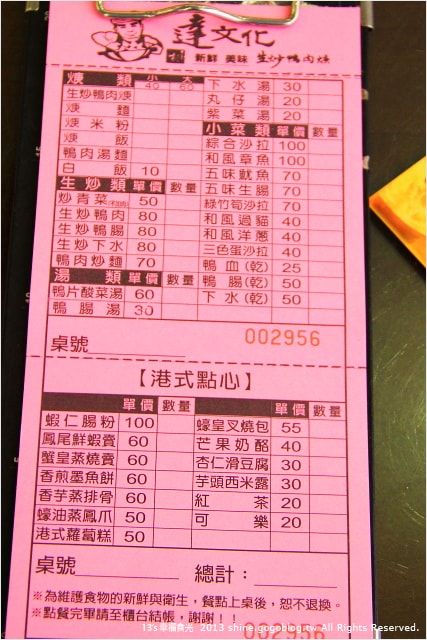 達文化
新鮮 美味 生炒鴨肉焿
焿類 小40 大60
生炒鴨肉焿
焿麵
焿米粉
焿飯
鴨肉湯麵
白飯 10
生炒類 單價 數量
炒青菜 50
生炒鴨肉 80
生炒鴨腸 80
生炒下水 80
鴨肉炒麵 70
湯類 單價 數量
鴨片酸菜湯 60
鴨腸湯 30
下水湯 30
丸仔湯 20
紫菜湯 20
小菜類 單價 數量
綜合沙拉 100
和風章魚 100
五味魷魚 70
五味生腸 70
綠竹筍沙拉 70
和風過貓 40
和風洋蔥 40
三色蛋沙拉 40
鴨血(乾) 25
鴨腸(乾) 50
下水(乾) 50
桌號
002956
【港式點心】
單價 數量 單價 數量
蝦仁腸粉 100
鳳尾鮮蝦賣 60
蟹皇蒸燒賣 60
香煎墨魚餅 60
香芋蒸排骨 60
蠔油蒸鳳爪 50
港式蘿蔔糕 50
蠔皇叉燒包 55
芒果奶酪 40
杏仁滑豆腐 30
芋頭西米露 30
紅茶 20
可樂 20
桌號 總計：
※為維護食物的新鮮與衛生，餐點上桌後，恕不退換。
※點餐完畢請至櫃台結帳，謝謝！！
13's幸福食光 2013 shine.gogoblog.tw All Rights Reserved.